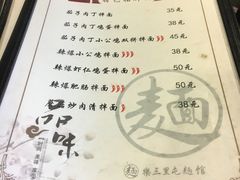 茄子肉丁拌面 35元
茄子肉丁鸡蛋拌面 38元
茄子肉丁小公鸡双拼拌面 45元
辣爆小公鸡拌面 38元
辣爆虾仁鸡蛋拌面 50元
辣爆肥肠拌面 50元
炒肉清拌面 38元
品味
麺
樂三里屯麺館